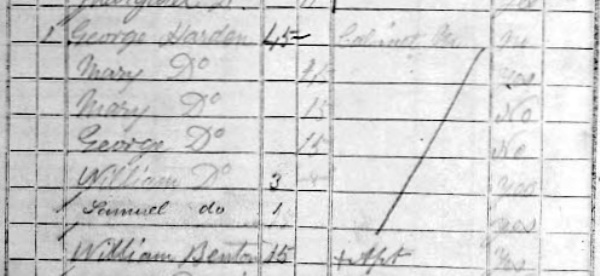 1 George Harden 45 Cabinet M No
Mary Do 45 Yes
Mary Do 15 No
George Do 15 No
William Do 3 Yes
Samuel do 1 Yes
William Benton 15 + Apt Yes